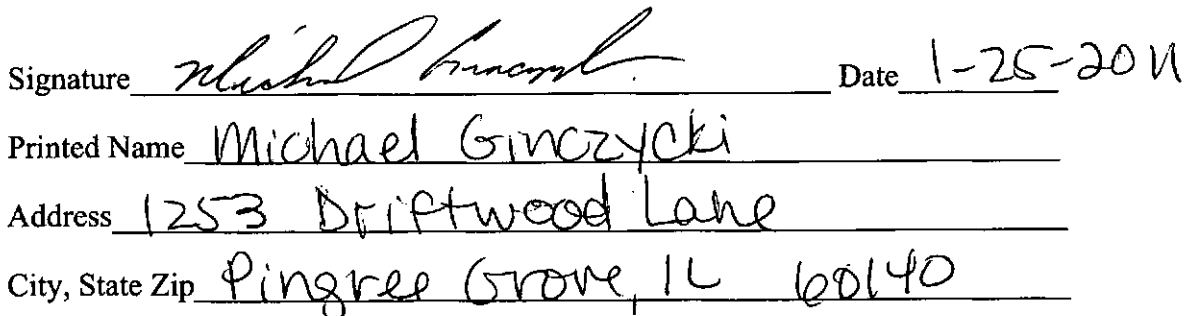 Signature Michael Ginczycki Date 1-25-2011
Printed Name Michael Ginczycki
Address 1253 Driftwood Lane
City, State Zip Pingree Grove, IL 60140